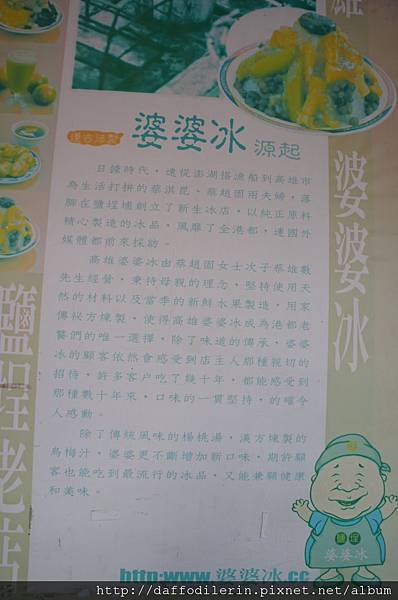 雄
婆婆冰
鹽埕老店
復古研製
婆婆冰 源起
日據時代，遠從澎湖搭漁船到高雄市
為生活打拼的蔡淇昆、蔡趙面雨夫婦，落
腳在鹽埕埔創立了新生冰店，以純正原料
精心製造的冰品，風靡了全港都，連國外
媒體都前來採訪。
高雄婆婆冰由蔡趙面女士次子蔡雄敦
先生經營，秉持母親的理念，堅持使用天
然的材料以及當季的新鮮水果製造，用家
傳祕方煉製，使得高雄婆婆冰成為港都老
饕們的唯一選擇，除了味道的傳承，婆婆
冰的顧客依然會感受到店主人那種親切的
招待，許多客户吃了幾十年，都能感受到
那種數十年來，口味的一貫堅持，的確令
人感動。
除了傳統風味的楊桃湯，漢方煉製的
烏梅汁，婆婆更不斷增加新口味，期許顧
客也能吃到最流行的冰品，又能兼顧健康
和美味。
鹽埕
婆婆冰
http:www.婆婆冰.cc
http://daffodilerin.pixnet.net/album